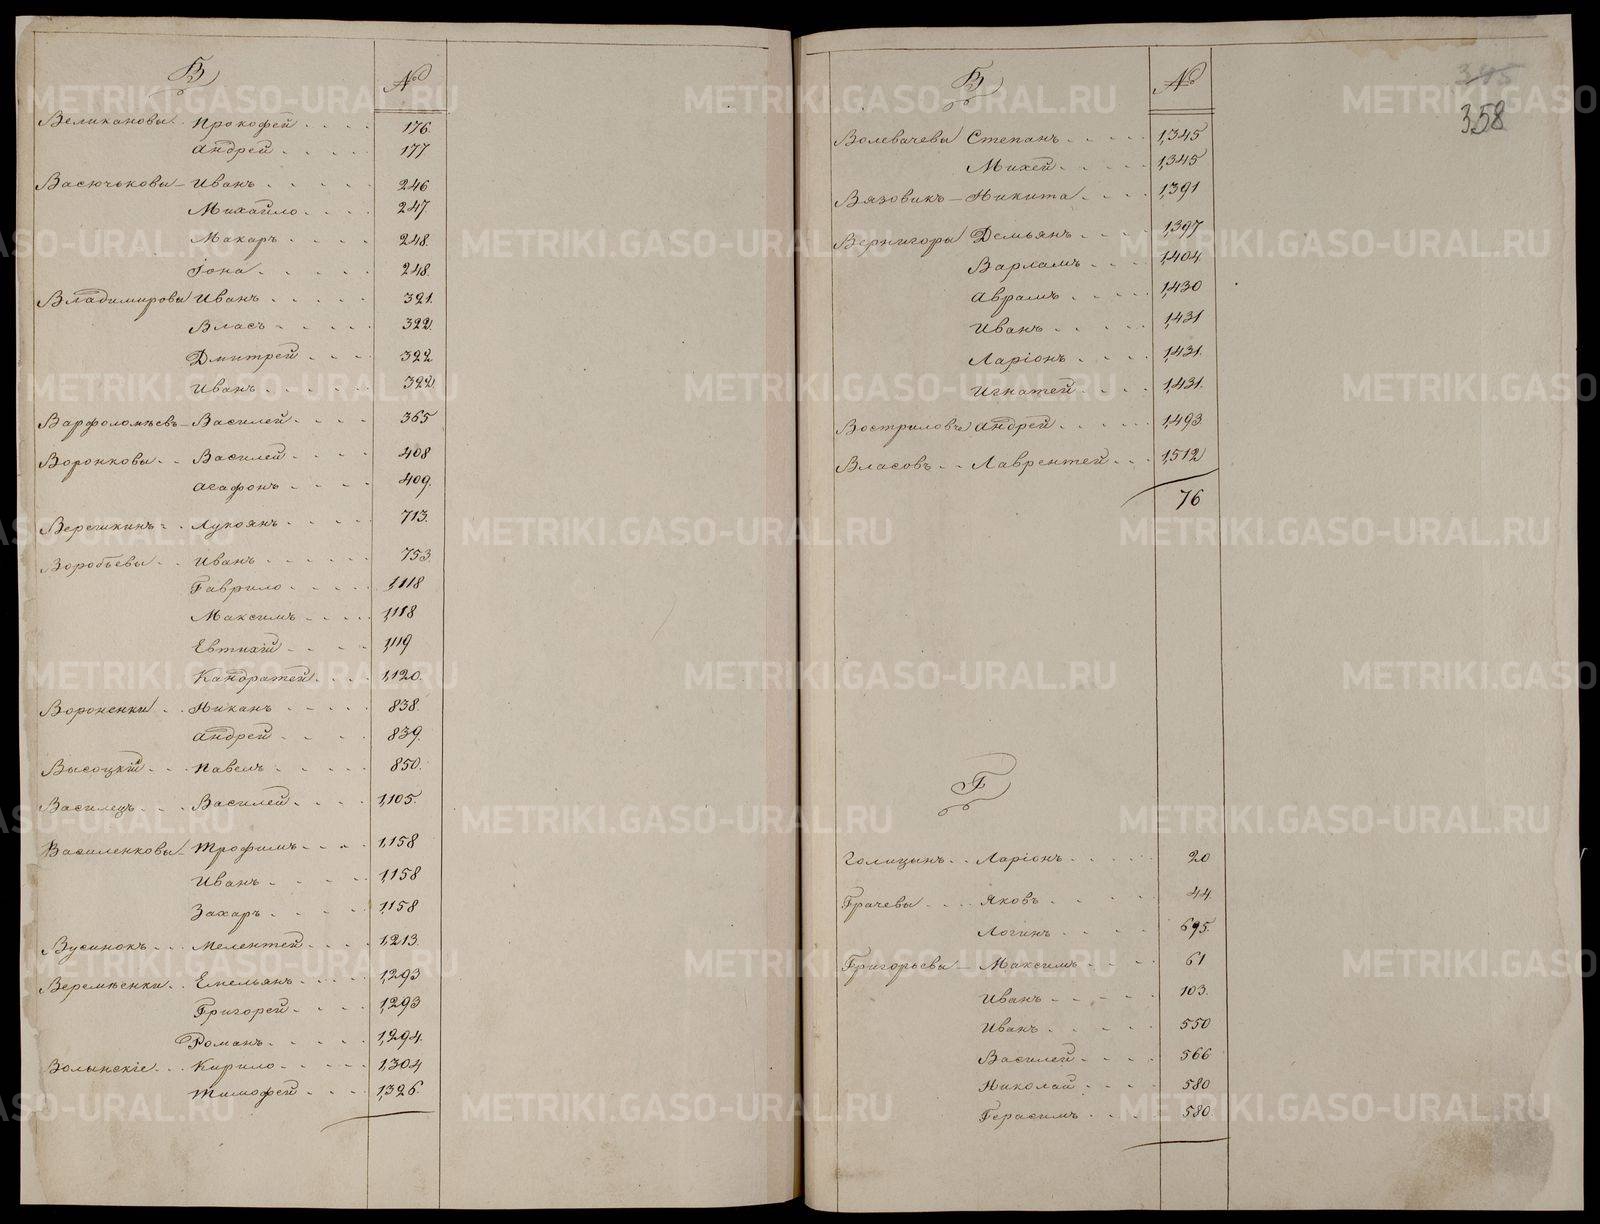 В
№
Великановы Прокофей 176
Андрей 177
Васючьковы Иванъ 246
Михайло 247
Макаръ 248
Іона 248
Владимировы Иванъ 321
Власъ 322
Дмитрей 322
Иванъ 322
Варфоломѣевъ Василей 365
Воронковы Василей 408
Агафонъ 409
Верешкинъ Лукоянъ 713
Воробьевы Иванъ 753
Гаврило 1,118
Максимъ 1,118
Евтихій 1,119
Кандратей 1,120
Вороненки Никанъ 838
Андрей 839
Высоцкій Павелъ 850
Василецъ Василей 1,105
Василенковы Трофимъ 1,158
Иванъ 1,158
Захаръ 1,158
Вусинокъ Мелентей 1,213
Веремѣенки Емельянъ 1,293
Григорей 1,293
Романъ 1,294
Волынскіе Кирило 1,304
Тимофей 1,326
В
№
345
358
Волевачевы Степанъ 1,345
Михей 1,345
Вязовикъ Никита 1,391
Вернигоры Демьянъ 1,397
Варламъ 1,404
Аврамъ 1,430
Иванъ 1,431
Ларіонъ 1,431
Игнатей 1,431
Востриловъ Андрей 1,493
Власовъ Лаврентей 1,512
76
Г
Голицынъ Ларіонъ 20
Грачевы Яковъ 44
Логинъ 695
Григорьевы Максимъ 61
Иванъ 103
Иванъ 550
Василей 566
Николай 580
Герасимъ 580
METRIKI.GASO-URAL.RU